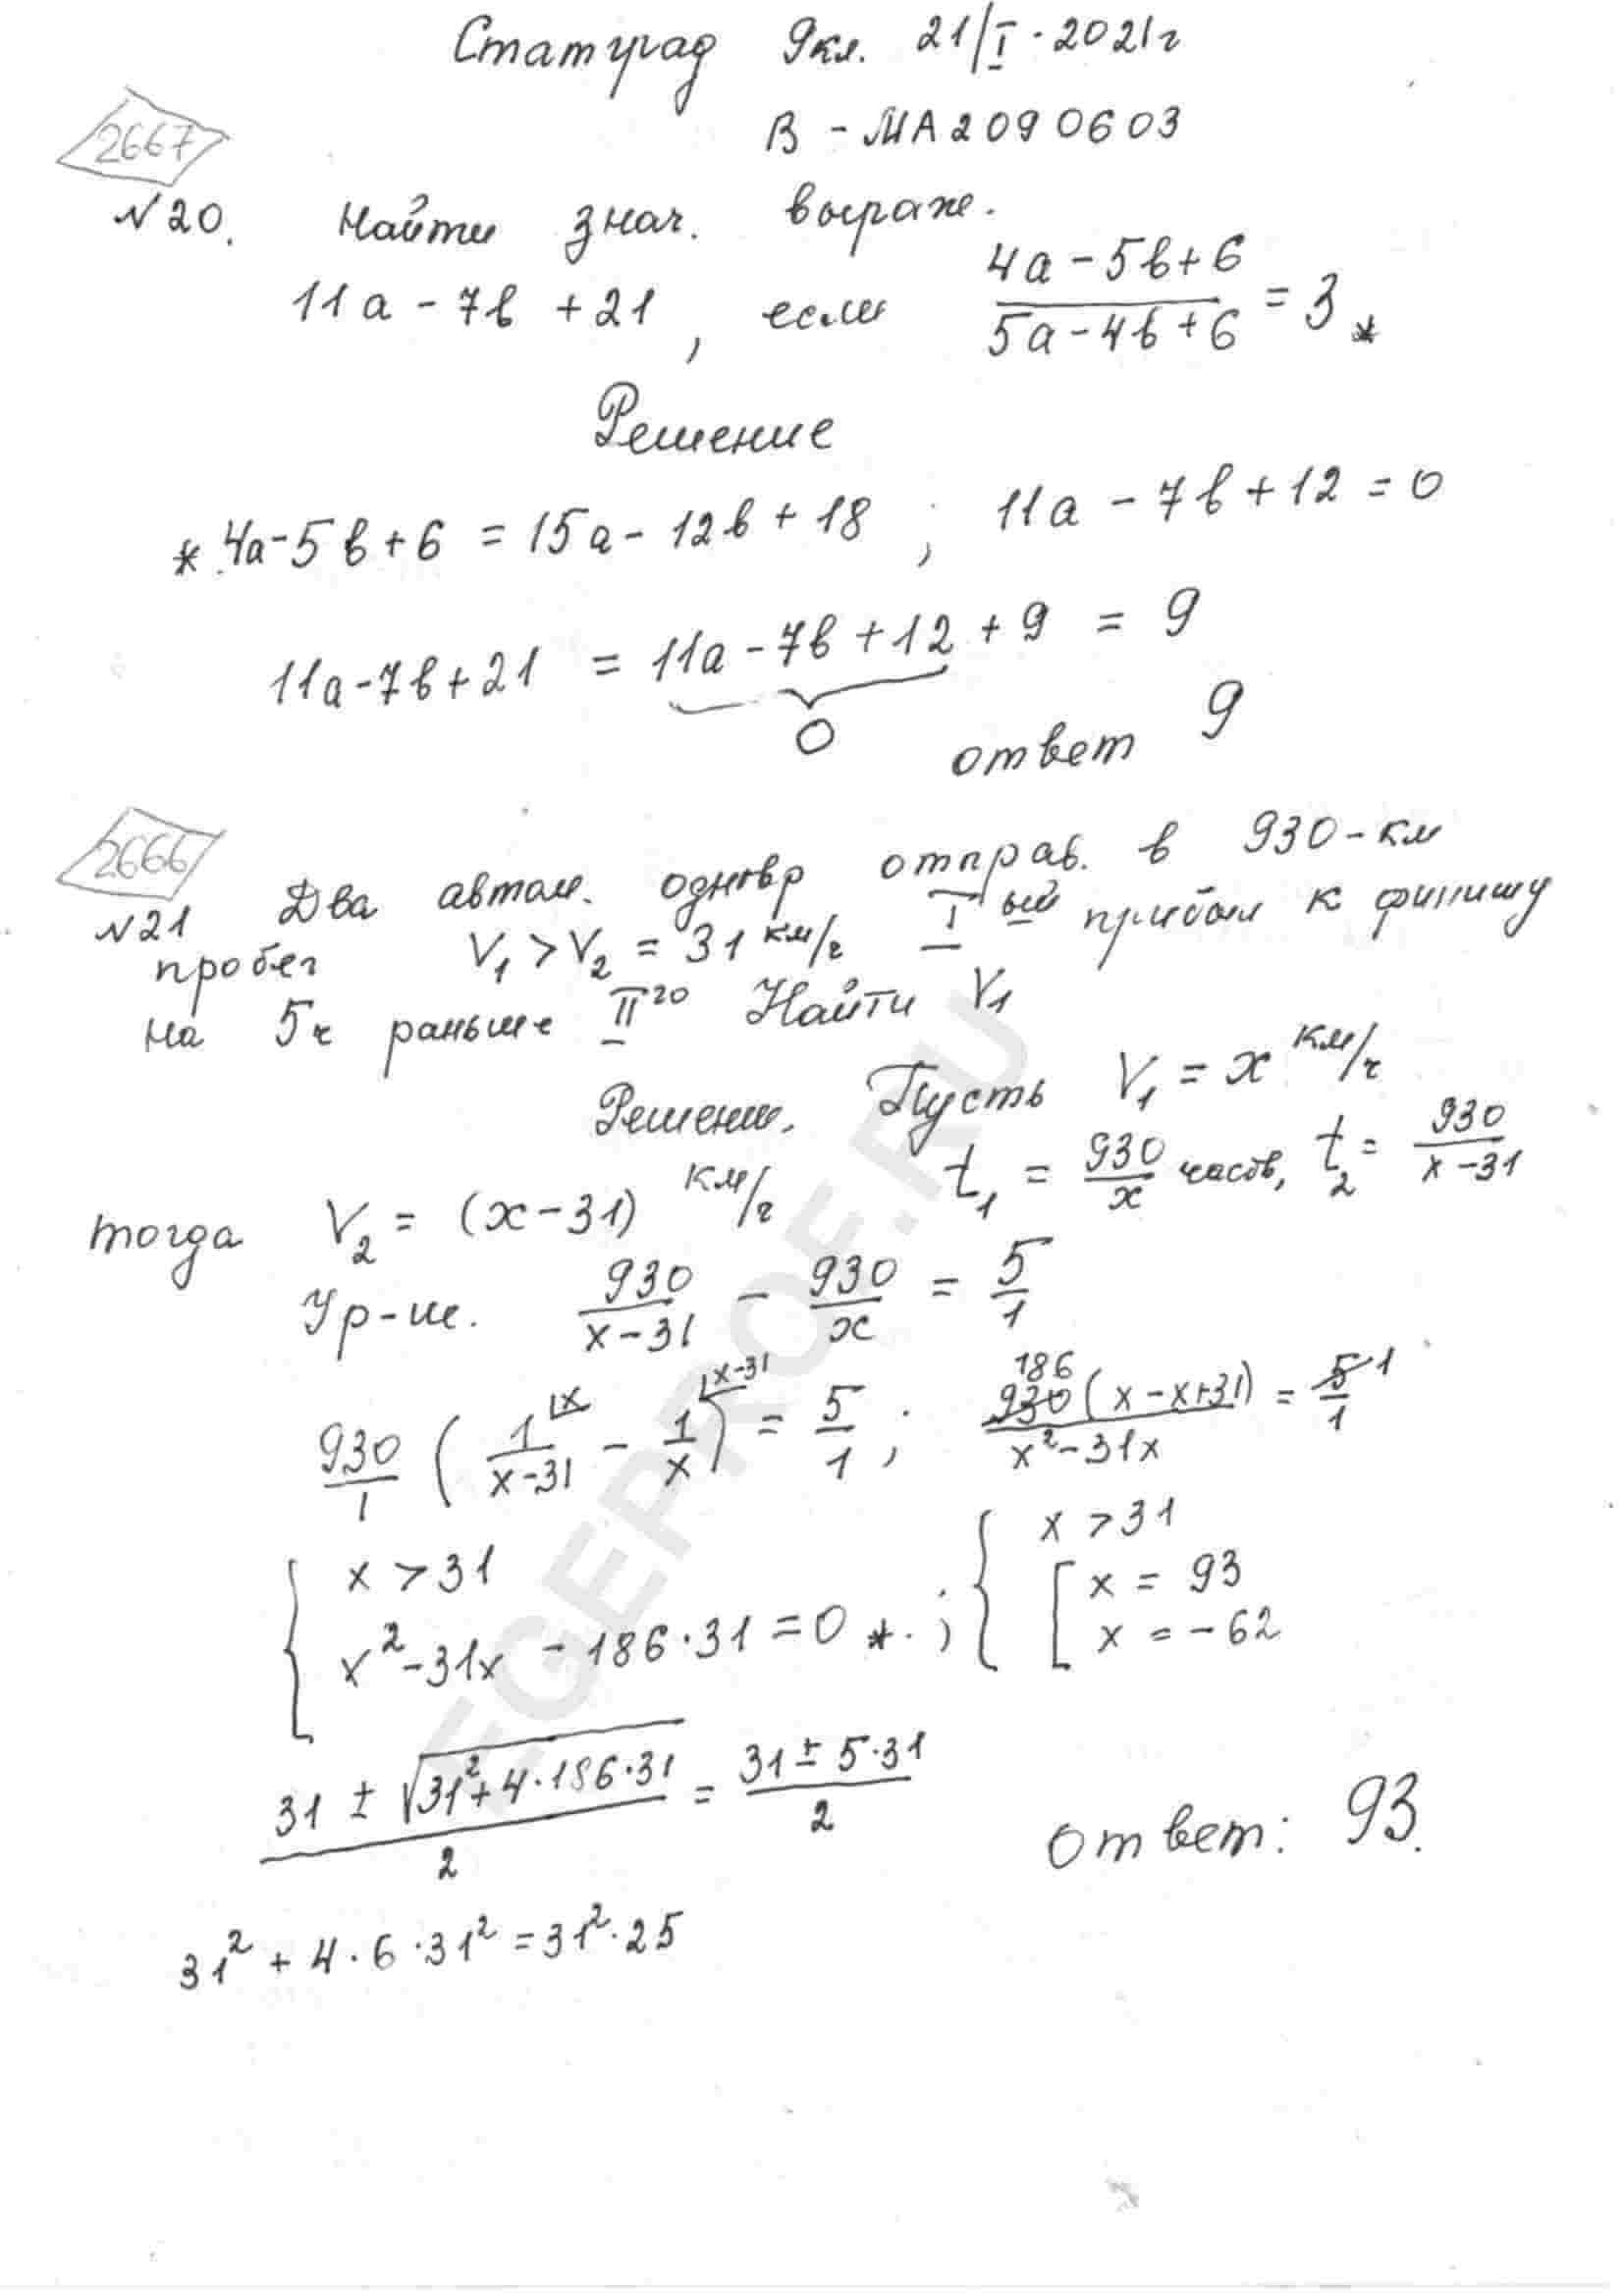 Статград 9кл. 21/I·2021г
В - МА2090603
2667
№20. Найти знач. выраж.
11a - 7b + 21, если (4a - 5b + 6)/(5a - 4b + 6) = 3 *
Решение
* 4a - 5b + 6 = 15a - 12b + 18 ; 11a - 7b + 12 = 0
11a - 7b + 21 = 11a - 7b + 12 + 9 = 9
0
ответ 9
2666
№21 Два автом. одновр отправ. в 930-км
пробег V₁ > V₂ = 31 км/ч I ый прибыл к финишу
на 5ч раньше II го Найти V₁
Решение. Пусть V₁ = x км/ч
тогда V₂ = (x - 31) км/ч t₁ = 930/x часов, t₂ = 930/(x - 31)
Ур-ие. 930/(x - 31) - 930/x = 5/1
930/1 (1/(x - 31) ⌊x - 1/x ⌊x-31) = 5/1 ; 186 930(x - x + 31)/(x² - 31x) = 5/1 1
{ x > 31
x² - 31x - 186·31 = 0 * ; { x > 31
[ x = 93
x = -62
(31 ± √(31² + 4·186·31))/2 = (31 ± 5·31)/2
ответ: 93.
31² + 4·6·31² = 31²·25
EGEPROF.RU